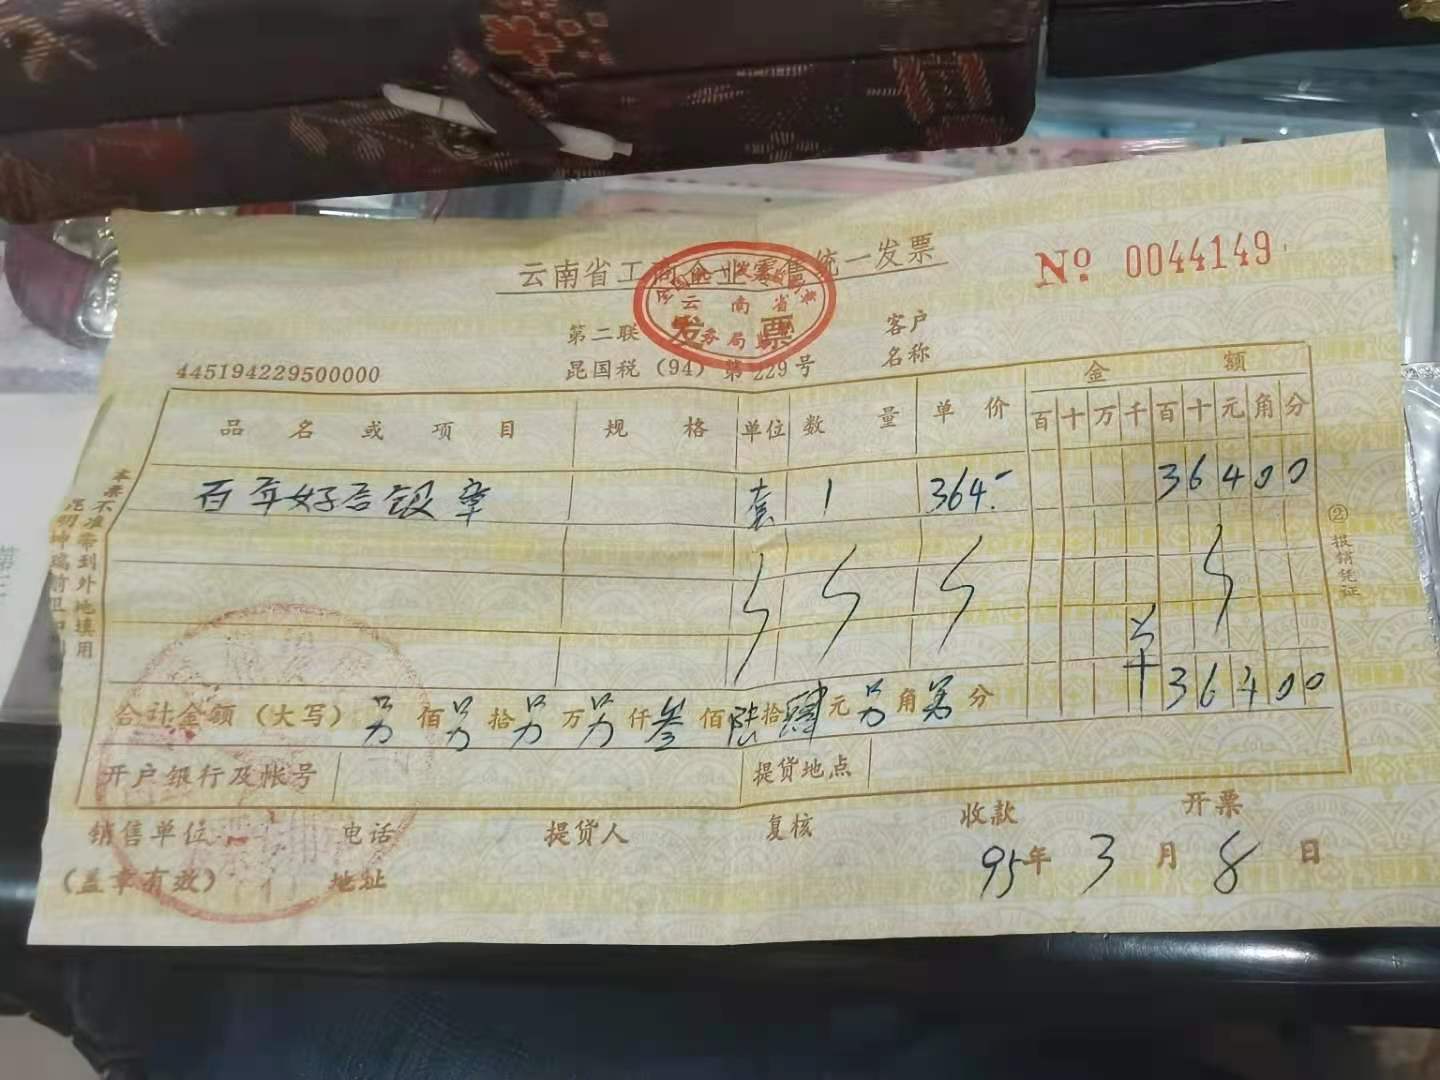 云南省工商企业零售统一发票
№ 0044149
云南省
发票
第二联
客户名称
昆国税(94)第229号
445194229500000
金额
品名或项目 规格 单位 数量 单价 百十万千百十元角分
百年好合银章 套 1 364.- 36400
¥36400
合计金额(大写) 另佰另拾另万另仟叁佰陆拾肆元另角另分
开户银行及帐号 提货地点
销售单位 电话 提货人 复核 收款 开票
(盖章有效) 地址 95年3月8日
本票不准带到外地填用
②报销凭证